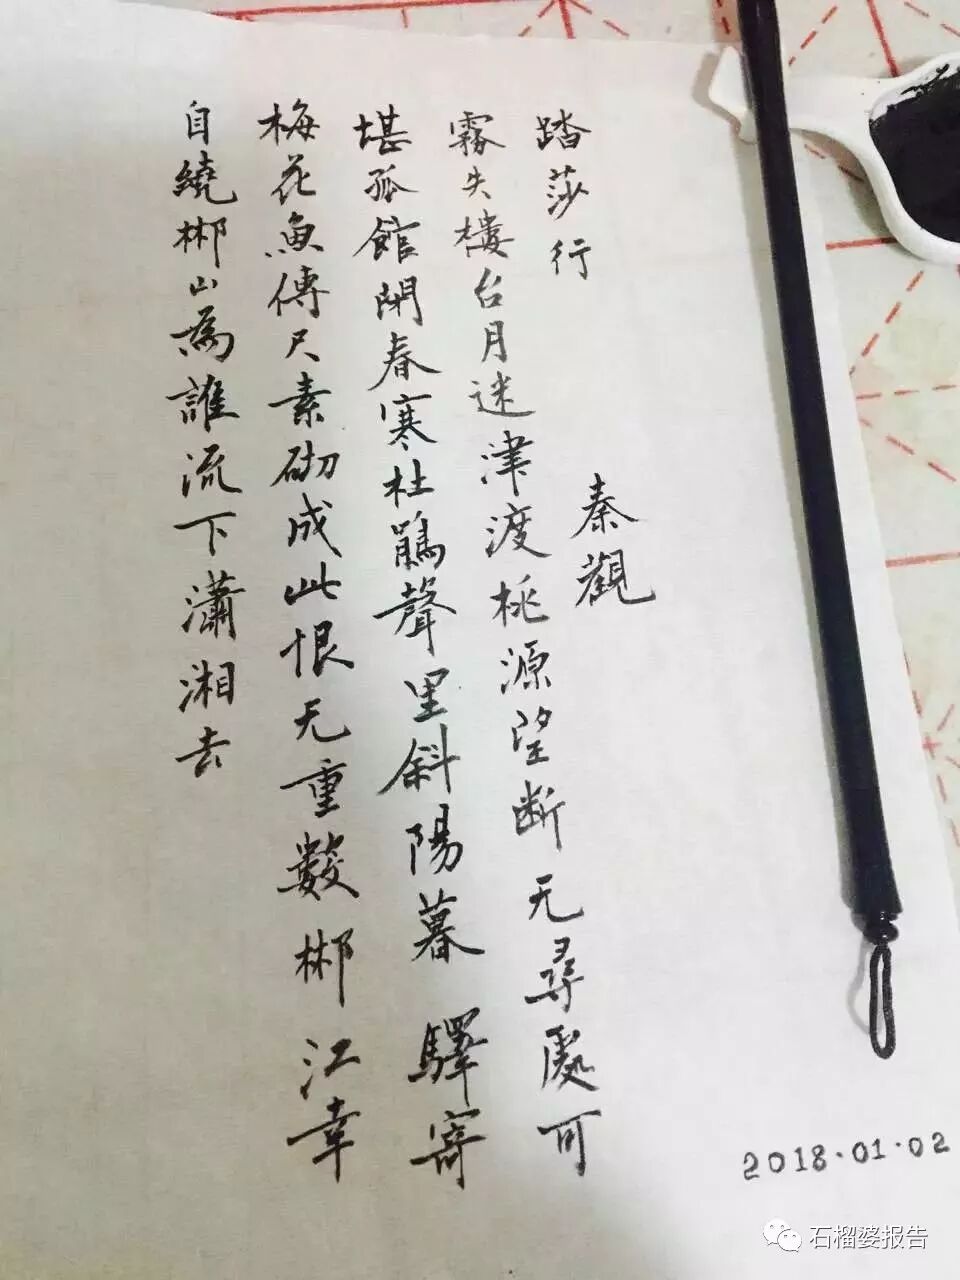 踏莎行
秦觀
霧失樓台月迷津渡桃源望断无尋處可
堪孤館閉春寒杜鵑聲里斜陽暮驛寄
梅花魚傳尺素砌成此恨无重數郴江幸
自繞郴山為誰流下瀟湘去
2018.01.02
石榴婆报告